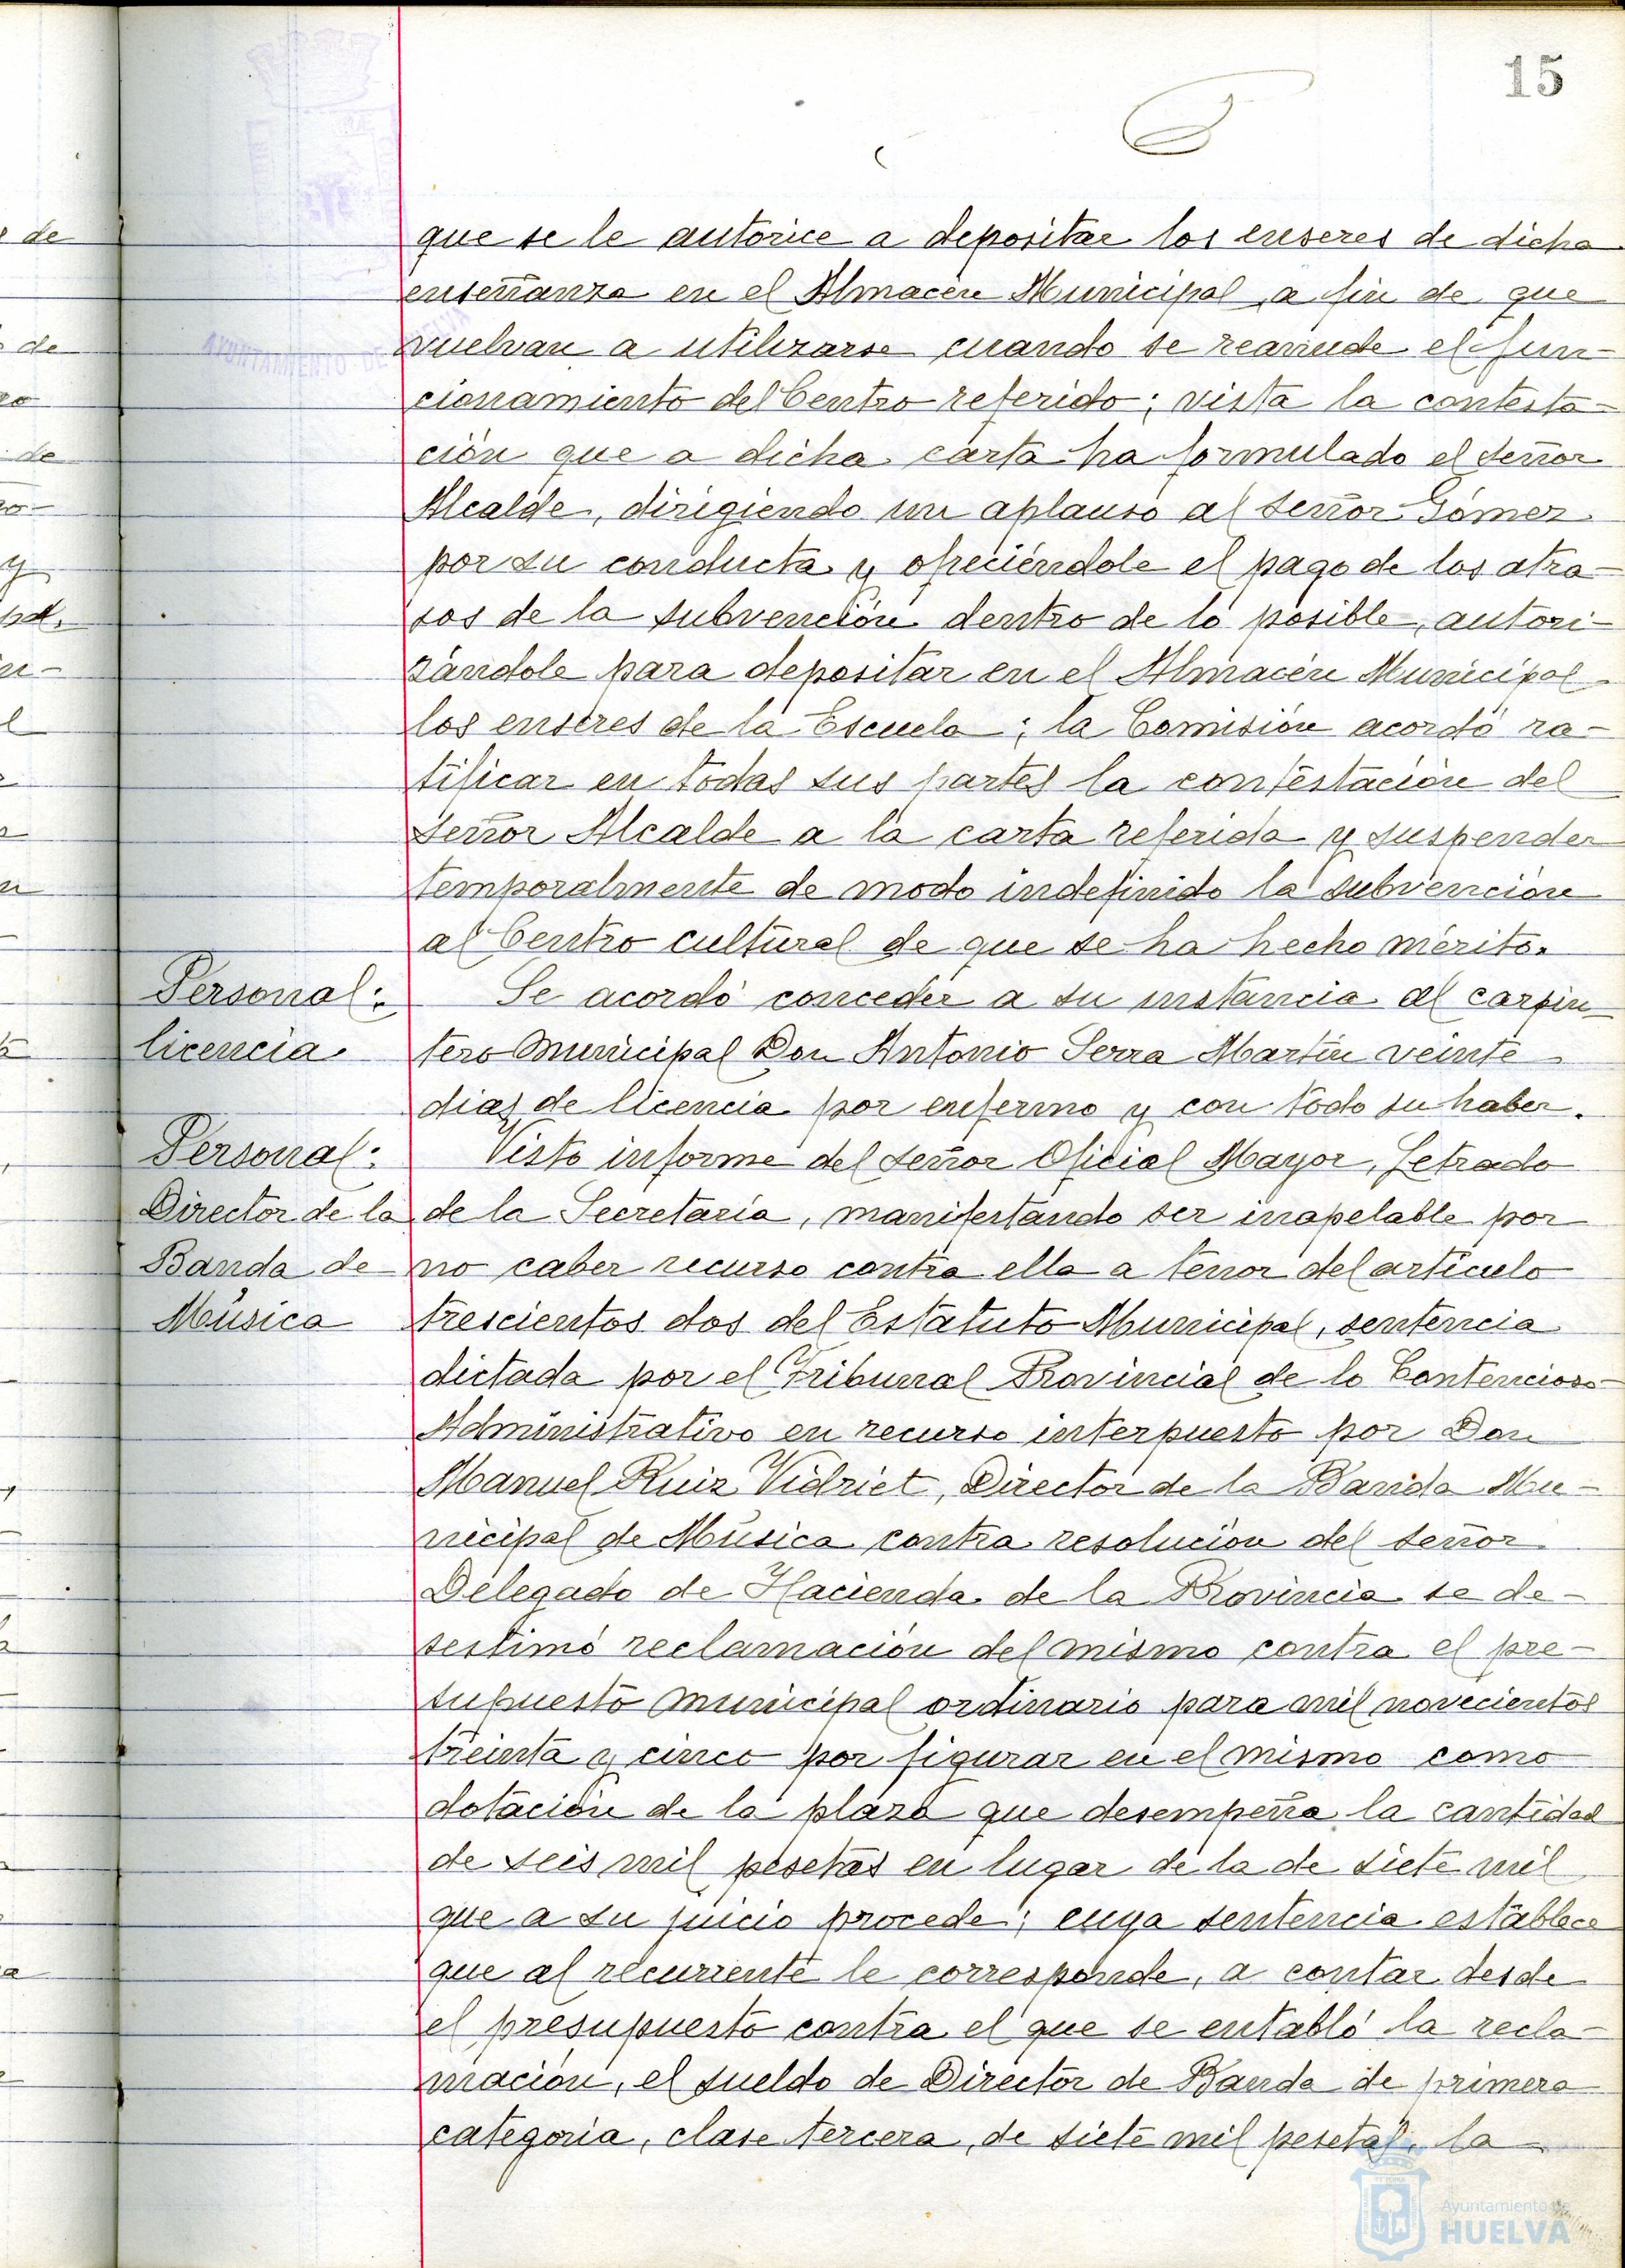 15
que se le autorice a depositar los enseres de dicha
enseñanza en el Almacén Municipal, a fin de que
vuelvan a utilizarse cuando se reanude el fun-
cionamiento del Centro referido; vista la contesta-
ción que a dicha carta ha formulado el señor
Alcalde, dirigiendo un aplauso al señor Gómez
por su conducta y ofreciéndole el pago de los atra-
sos de la subvención dentro de lo posible, autori-
zándole para depositar en el Almacén Municipal
los enseres de la Escuela; la Comisión acordó ra-
tificar en todas sus partes la contestación del
señor Alcalde a la carta referida y suspender
temporalmente de modo indefinido la subvención
al Centro cultural de que se ha hecho mérito.
Personal:
licencia.
Se acordó conceder a su instancia al carpin
tero municipal Don Antonio Serra Martín veinte
dias de licencia por enfermo y con todo su haber.
Personal:
Director de la
Banda de
Música
Visto informe del señor Oficial Mayor, Letrado
de la Secretaría, manifestando ser inapelable por
no caber recurso contra ella a tenor del artículo
trescientos dos del Estatuto Municipal, sentencia
dictada por el Tribunal Provincial de lo Contencioso-
Administrativo en recurso interpuesto por Don
Manuel Ruiz Vidriet, Director de la Banda Mu-
nicipal de Música contra resolución del señor
Delegado de Hacienda de la Provincia se de-
sestimó reclamación del mismo contra el pre-
supuesto municipal ordinario para mil novecientos
treinta y cinco por figurar en el mismo como
dotación de la plaza que desempeña la cantidad
de seis mil pesetas en lugar de la de siete mil
que a su juicio procede; cuya sentencia establece
que al recurrente le corresponde, a contar desde
el presupuesto contra el que se entabló la recla-
mación, el sueldo de Director de Banda de primera
categoria, clase tercera, de siete mil pesetas, la
AYUNTAMIENTO DE HUELVA
Ayuntamiento de
HUELVA